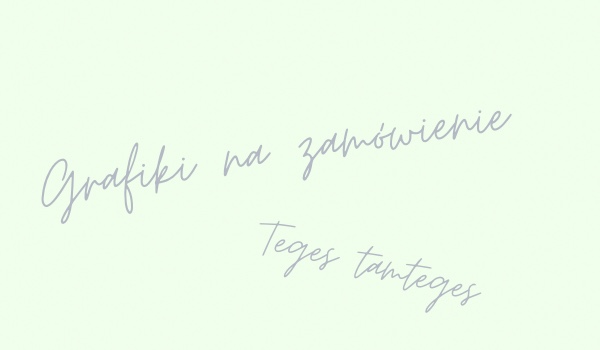 Grafiki na zamówienie
Teges tamteges